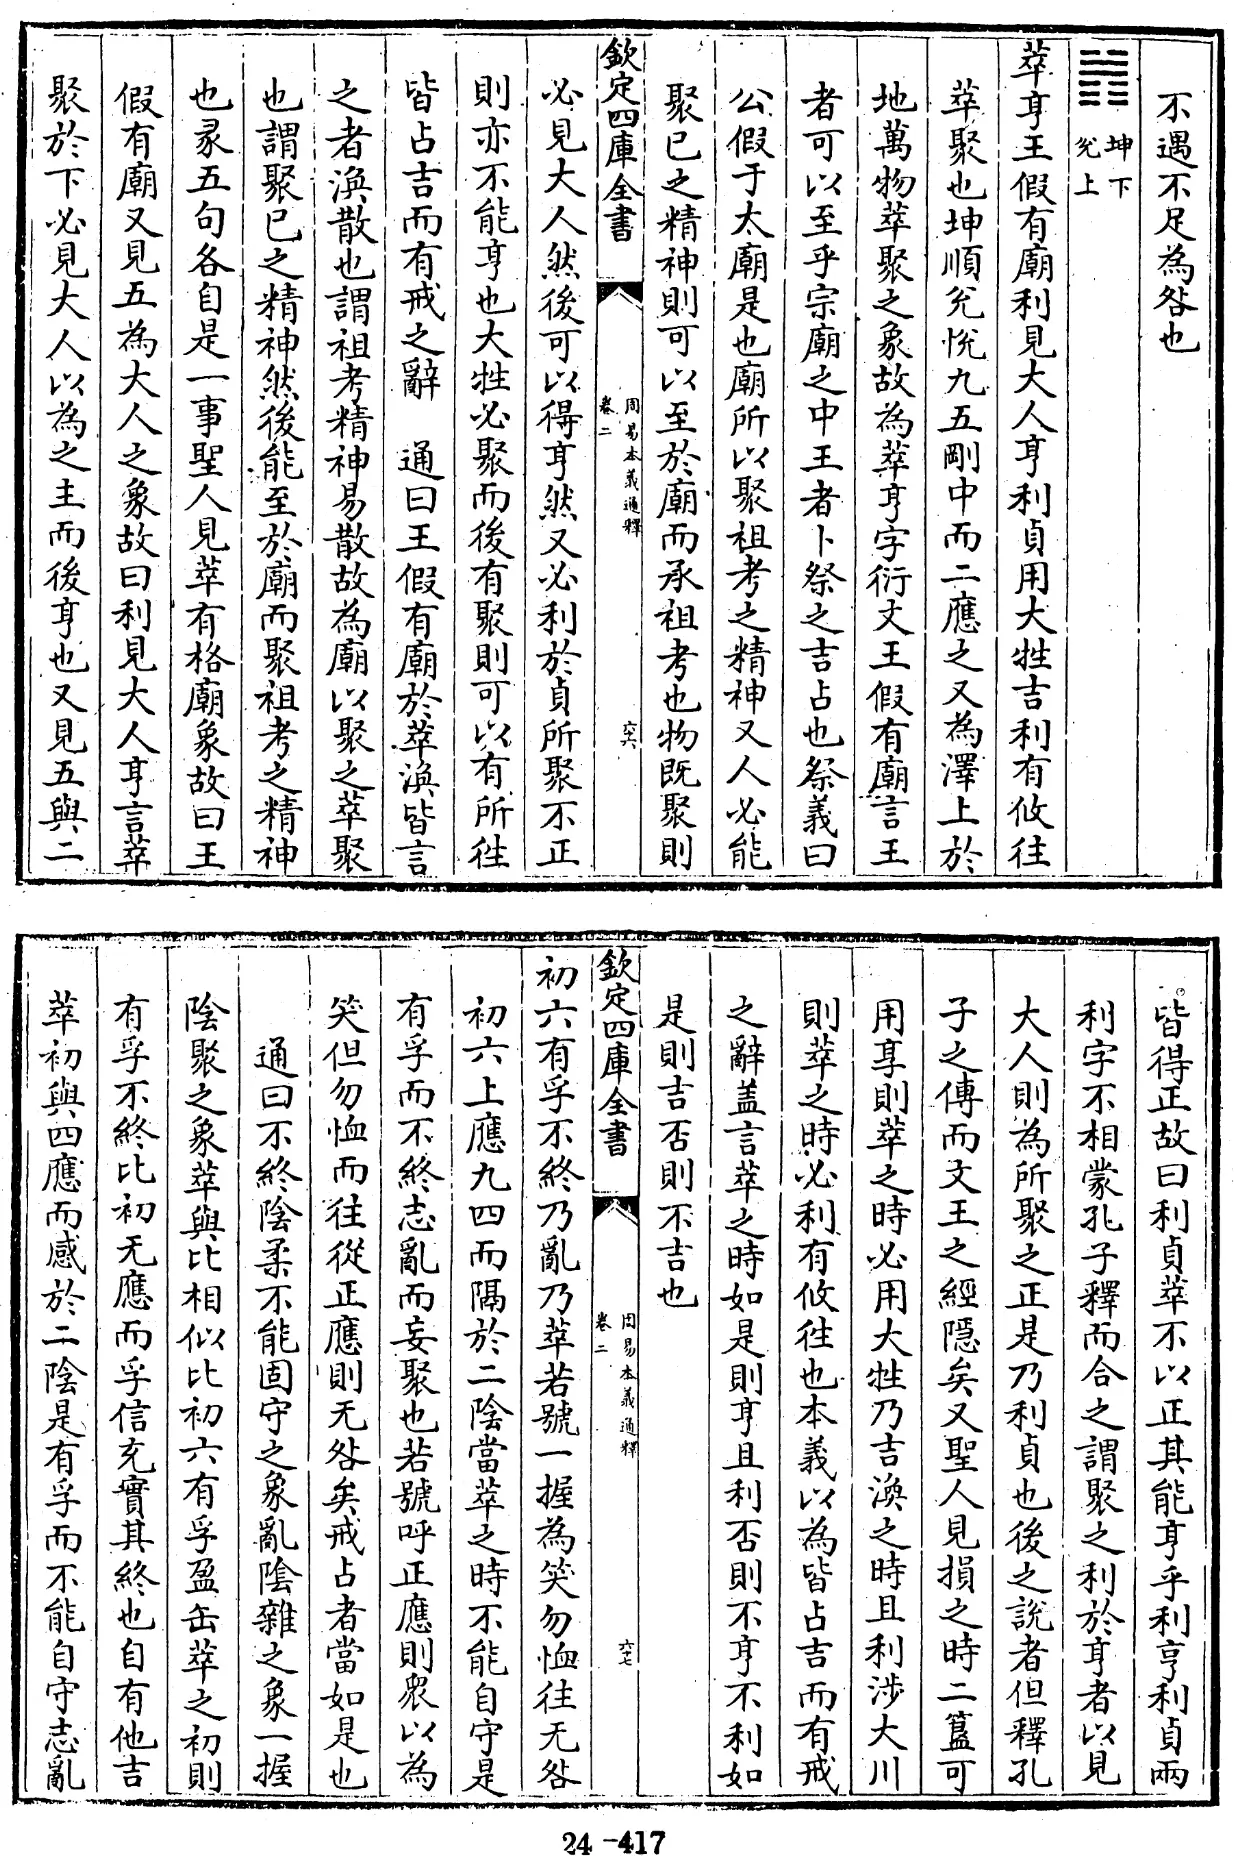 不遇不足為咎也
坤下
兌上
萃亨王假有廟利見大人亨利貞用大牲吉利有攸往
萃聚也坤順兌悅九五剛中而二應之又為澤上於
地萬物萃聚之象故為萃亨字衍文王假有廟言王
者可以至乎宗廟之中王者卜祭之吉占也祭義曰
公假于太廟是也廟所以聚祖考之精神又人必能
聚已之精神則可以至於廟而承祖考也物既聚則
欽定四庫全書
周易本義通釋
卷二
六六
必見大人然後可以得亨然又必利於貞所聚不正
則亦不能亨也大牲必聚而後有聚則可以有所往
皆占吉而有戒之辭 通曰王假有廟於萃渙皆言
之者渙散也謂祖考精神易散故為廟以聚之萃聚
也謂聚已之精神然後能至於廟而聚祖考之精神
也彖五句各自是一事聖人見萃有格廟象故曰王
假有廟又見五為大人之象故曰利見大人亨言萃
聚於下必見大人以為之主而後亨也又見五與二
皆得正故曰利貞萃不以正其能亨乎利亨利貞兩
利字不相蒙孔子釋而合之謂聚之利於亨者以見
大人則為所聚之正是乃利貞也後之說者但釋孔
子之傳而文王之經隱矣又聖人見損之時二簋可
用享則萃之時必用大牲乃吉渙之時且利涉大川
則萃之時必利有攸往也本義以為皆占吉而有戒
之辭蓋言萃之時如是則亨且利否則不亨不利如
是則吉否則不吉也
欽定四庫全書
周易本義通釋
卷二
六七
初六有孚不終乃亂乃萃若號一握為笑勿恤往无咎
初六上應九四而隔於二陰當萃之時不能自守是
有孚而不終志亂而妄聚也若號呼正應則眾以為
笑但勿恤而往從正應則无咎矣戒占者當如是也
通曰不終陰柔不能固守之象亂陰雜之象一握
陰聚之象萃與比相似比初六有孚盈缶萃之初則
有孚不終比初无應而孚信充實其終也自有他吉
萃初與四應而感於二陰是有孚而不能自守志亂
24-417